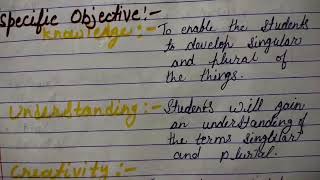 Specific Objective:-
Knowledge:- To enable the students
to develop singular
and plural of
the things.
Understanding:- Students will gain
an understanding of
the terms singular
and plural.
Creativity:-